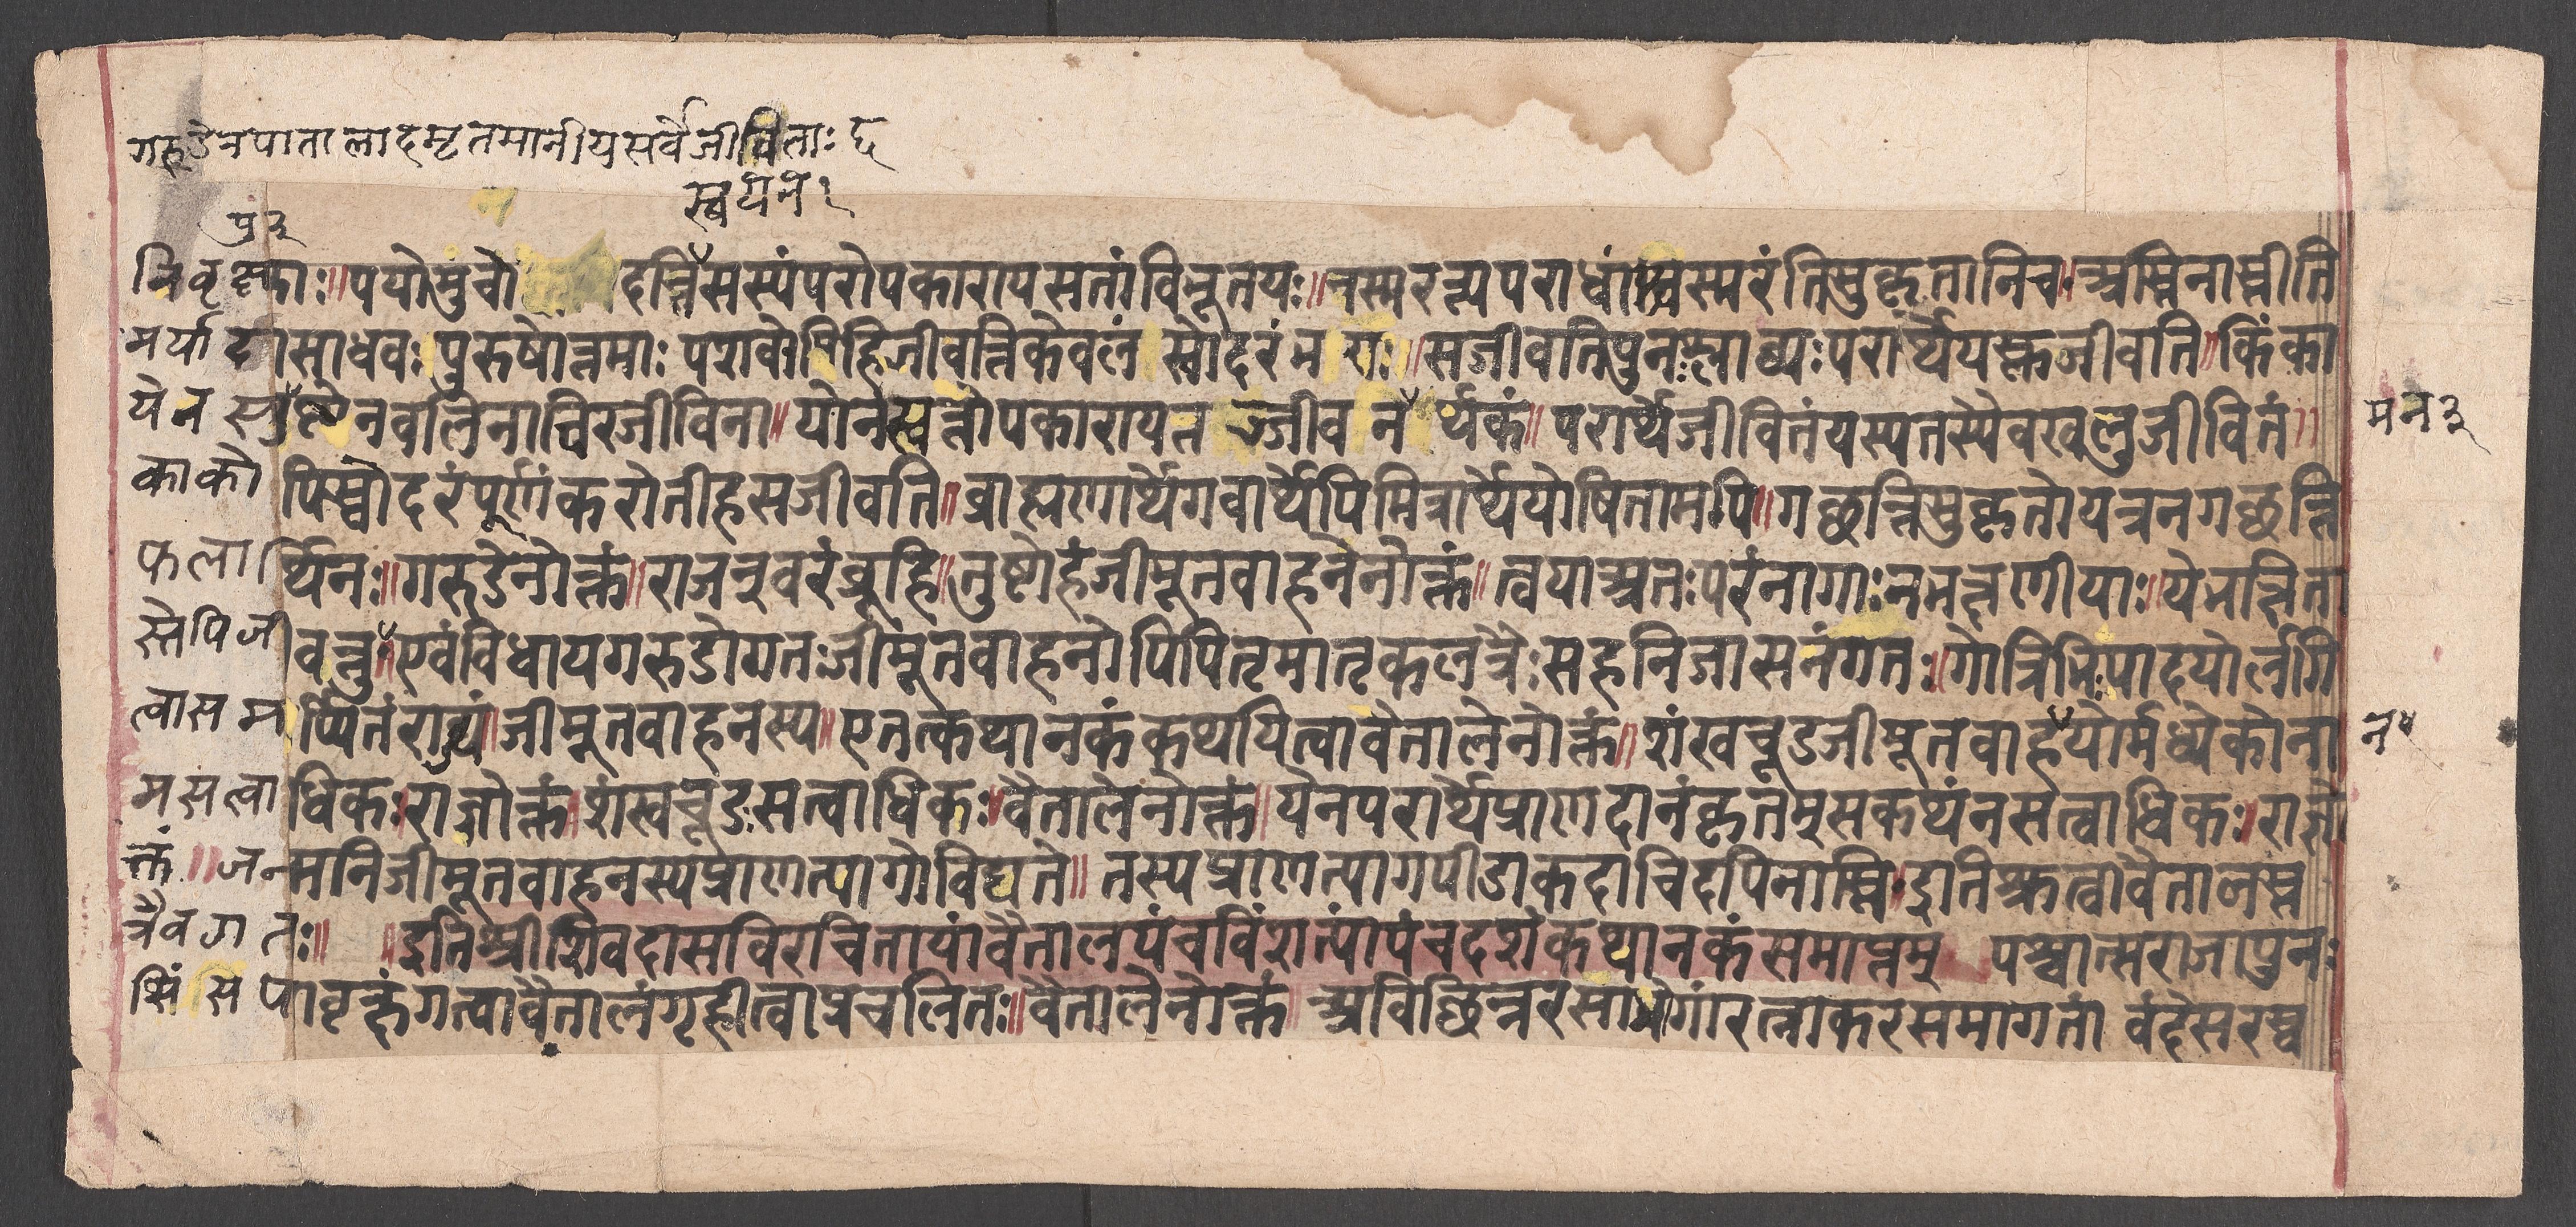 गरुडेनपातालादमृतमानीयसर्वेजीविताः ६
स्वयंन १
पु २
निवृक्षाः॥पयोमुंचो दन्तिसस्यंपरोपकारायसतांविभूतयः॥नस्मरन्त्यपराधांश्चस्मरंतिसुकृतानिच॥अभिन्नाभीति
मर्यादासाधवःपुरुषोत्तमाः पशवोपिहिजीवन्तिकेवलं स्वोदरंभराः॥सजीवतिपुनःश्लाघ्यःपरार्थेयस्तुजीवति॥किंका
येनसुपुष्टेनबलिनाचिरजीविना॥योनसत्वोपकारायतज्जीवनर्थकं॥परार्थेजीवितंयस्यतस्यैवखलुजीवितं॥
मन ३
काकोपिस्वोदरंपूर्णंकरोतीहसजीवति॥ब्राह्मणार्थेगवार्थेपिमित्रार्थेयोषितामपि॥गछन्तिसुकृतोयत्रनगछन्ति
फलार्थिनः॥गरुडेनोक्तं॥राजन्वरंब्रूहि॥तुष्टोहंजीमूतवाहनेनोक्तं॥त्वयाअतःपरंनागाःनभक्षणीयाः॥येभक्षिता
स्तेपिजीवन्तु॥एवंविधायगरुडोगतःजीमूतवाहनोपिपितृमातृकलत्रैःसहनिजासनंगतः॥गोत्रिभिःपादयोर्लगि
त्वासमर्पितंराज्यं॥जीमूतवाहनस्य॥एतत्कथानकंकथयित्वावेतालेनोक्तं॥शंखचूडजीमूतवाहयोर्मध्येकोना
न
मसत्वाधिकः॥राज्ञोक्तं॥शंखचूडःसत्वाधिकः॥वैतालेनोक्तं॥येनपरार्थेप्राणदानंकृतम्सकथंनसत्वाधिकः॥राज्ञो
क्तं॥जन्मनिजीमूतवाहनस्यप्राणत्यागोविद्यते॥तस्यप्राणत्यागपीडाकदाचिदपिनास्ति॥इतिश्रुत्वावैतालस्त
त्रैवगतः॥ ॥इतिश्रीशिवदासविरचितायांवैतालपंचविंशत्यांपंचदशंकथानकंसमाप्तम् पश्चात्सराजापुनः
शिंसिपावृक्षंगत्वावैतालंगृहीत्वाप्रचलितः॥वैतालेनोक्तं॥अविछिन्नरसा रत्नाकरसमागतां वंदेसरस्व